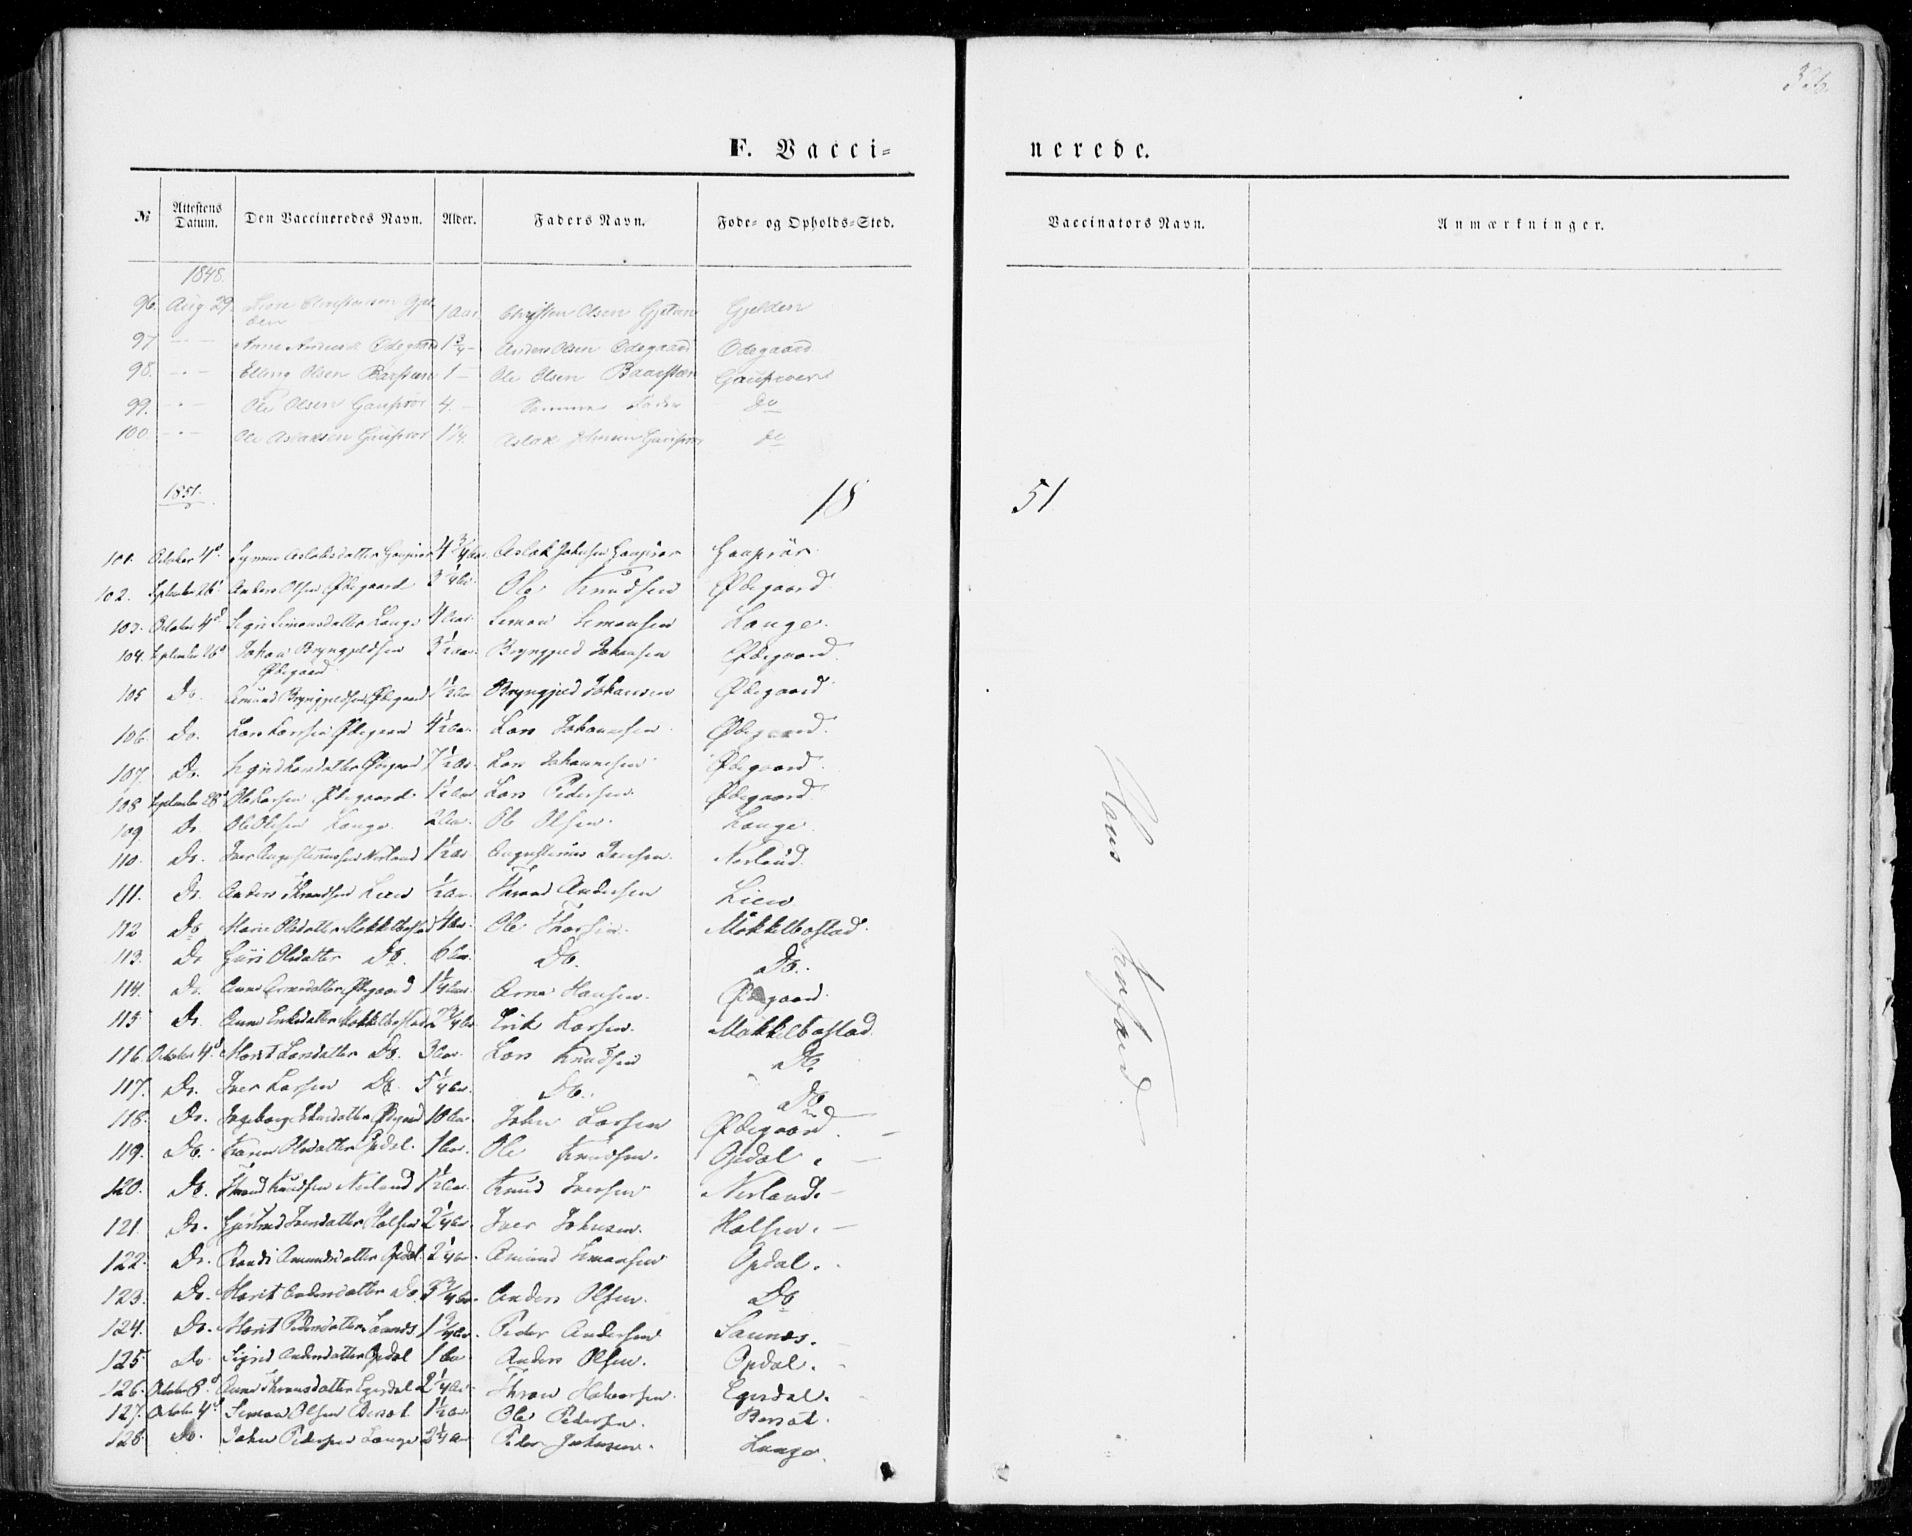 336
F. Vacci-nerede.
№ Attestens Datum. Den Vaccineredes Navn. Alder. Faders Navn. Føde- og Opholds-Sted. Vaccinators Navn. Anmærkninger.
1848.
96. Aug 29. 1 Aar Christen Olsen Gjelden
97 — — Anne Andersd Ødegaard 1 3/4 — Anders Olsen Ødegaard Ødegaard
98. — — Elling Olsen 1 — Ole Olsen
99. — — Ole Olsen 4. — Samme Fader Do
100 — — Ole Aslaksen 1 1/4 Aslak Johnsen Do
1851.
1851
101. October 4d Aslaksdatter 4 3/4 Aar Aslak Johnsen
102. September 26d Anders Olsen Ødegaard 3 1/4 Aar. Ole Knudsen Ødegaard
103. October 4d Sigri Simonsdatter Lange 4 Aar. Simon Simonsen Lange.
104. September 26d Johan Bryngjeldsen 3 1/2 Aar. Bryngjeld Johansen Ødegaard
Ødegaard
105 Do. Amund Bryngjeldsen Ødegaard 1 1/2 Aar Bryngjeld Johansen Ødegaard
106. Do. Lars Larsen Ødegaard 4 1/2 Aar. Lars Johannesen Ødegaard.
107. Do. Sigrid Larsdatter Ødegaard 7 1/2 Aar Lars Johannesen Ødegaard.
108 September 28d Ole Larsen Ødegaard 1 1/2 Aar Lars Pedersen Ødegaard
109 Do. Ole Olsen Lange. 2 Aar. Ole Olsen. Lange.
110. Do. Iver Augustinussen Nerland 1 1/2 Aar Augustinus Jensen. Nerland.
111. Do. Anders Throndsen Lien 1/2 Aar Thrond Andersen Lien
112 Do Marie Olsdatter Mokkelbostad 4 Aar. Ole Thorsen. Mokkelbostad.
113. Do Guri Olsdatter Do. 6 Aar. Do. Do.
114. Do. Anne Arnesdatter Ødegaard 1 1/4 Aar Arne Hansen. Ødegaard.
115 Do. Anne Eriksdatter Mokkelbostad 2 3/4 Aar Erik Larsen. Mokkelbostad.
116. October 4d Marit Larsdatter Do. 3 Aar. Lars Knudsen Do
117. Do. Iver Larsen Do. 5 1/4 Aar. Do. Do
118. Do. Ingeborg Johnsdatter Ødegaard 10 Aar. John Larsen Ødegaard. —
119. Do. Karen Olsdatter Opdal. 1 Aar. Ole Knudsen. Opdal. —
120. Do. Thrond Knudsen Nerland 1 1/2 Aar. Knud Iversen Nerland. —
121. Do. Gjertrud Iversdatter Halsen 2 1/4 Aar. Iver Johnsen. Halsen. —
122. Do. Randi Amundsdatter Opdal. 2 1/4 Aar. Amund Simonsen Opdal. -
123. Do. Marit Andersdatter Do. 3 3/4 Aar. Anders Olsen. Do
124. Do. Marit Pedersdatter Saunes 1 3/4 Aar. Peder Andersen Saunes. -
125. Do. Sigrid Andersdatter Opdal 1 Aar Anders Olsen. Opdal. -
126. October 8d Anne Thronsdatter Egesdal 2 1/4 Aar Thron Halvorsen. Egesdal. -
127. October 4d Simon Olsen Bersaat. 1 1/2 Aar. Ole Pedersen. Bersaat.
128. Do. John Pedersen Lange 2 1/4 Aar Peder Johnsen. Lange.
Hans